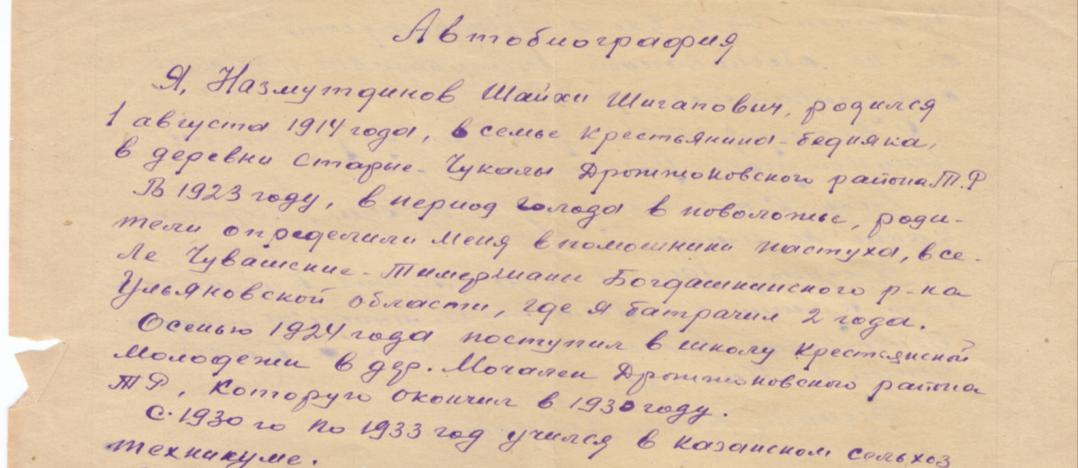 Автобиография
Я, Назмутдинов Шайхи Шигапович, родился
1 августа 1914 года, в семье крестьянина-бедняка,
в деревни Старые-Чукалы Дрожжановского района Т.Р
В 1923 году, в период голода в поволожье, роди-
тели определили меня в помошники пастуха, в се-
ле Чувашские-Тимерзяни Богдашкинского р-на
Ульяновской области, где я батрачил 2 года.
Осенью 1924 года поступил в школу крестьянской
Молодежи в дер. Мочалеи Дрожжановского района
ТР, которую окончил в 1930 году.
С 1930 го по 1933 год учился в казанском сельхоз
техникуме.